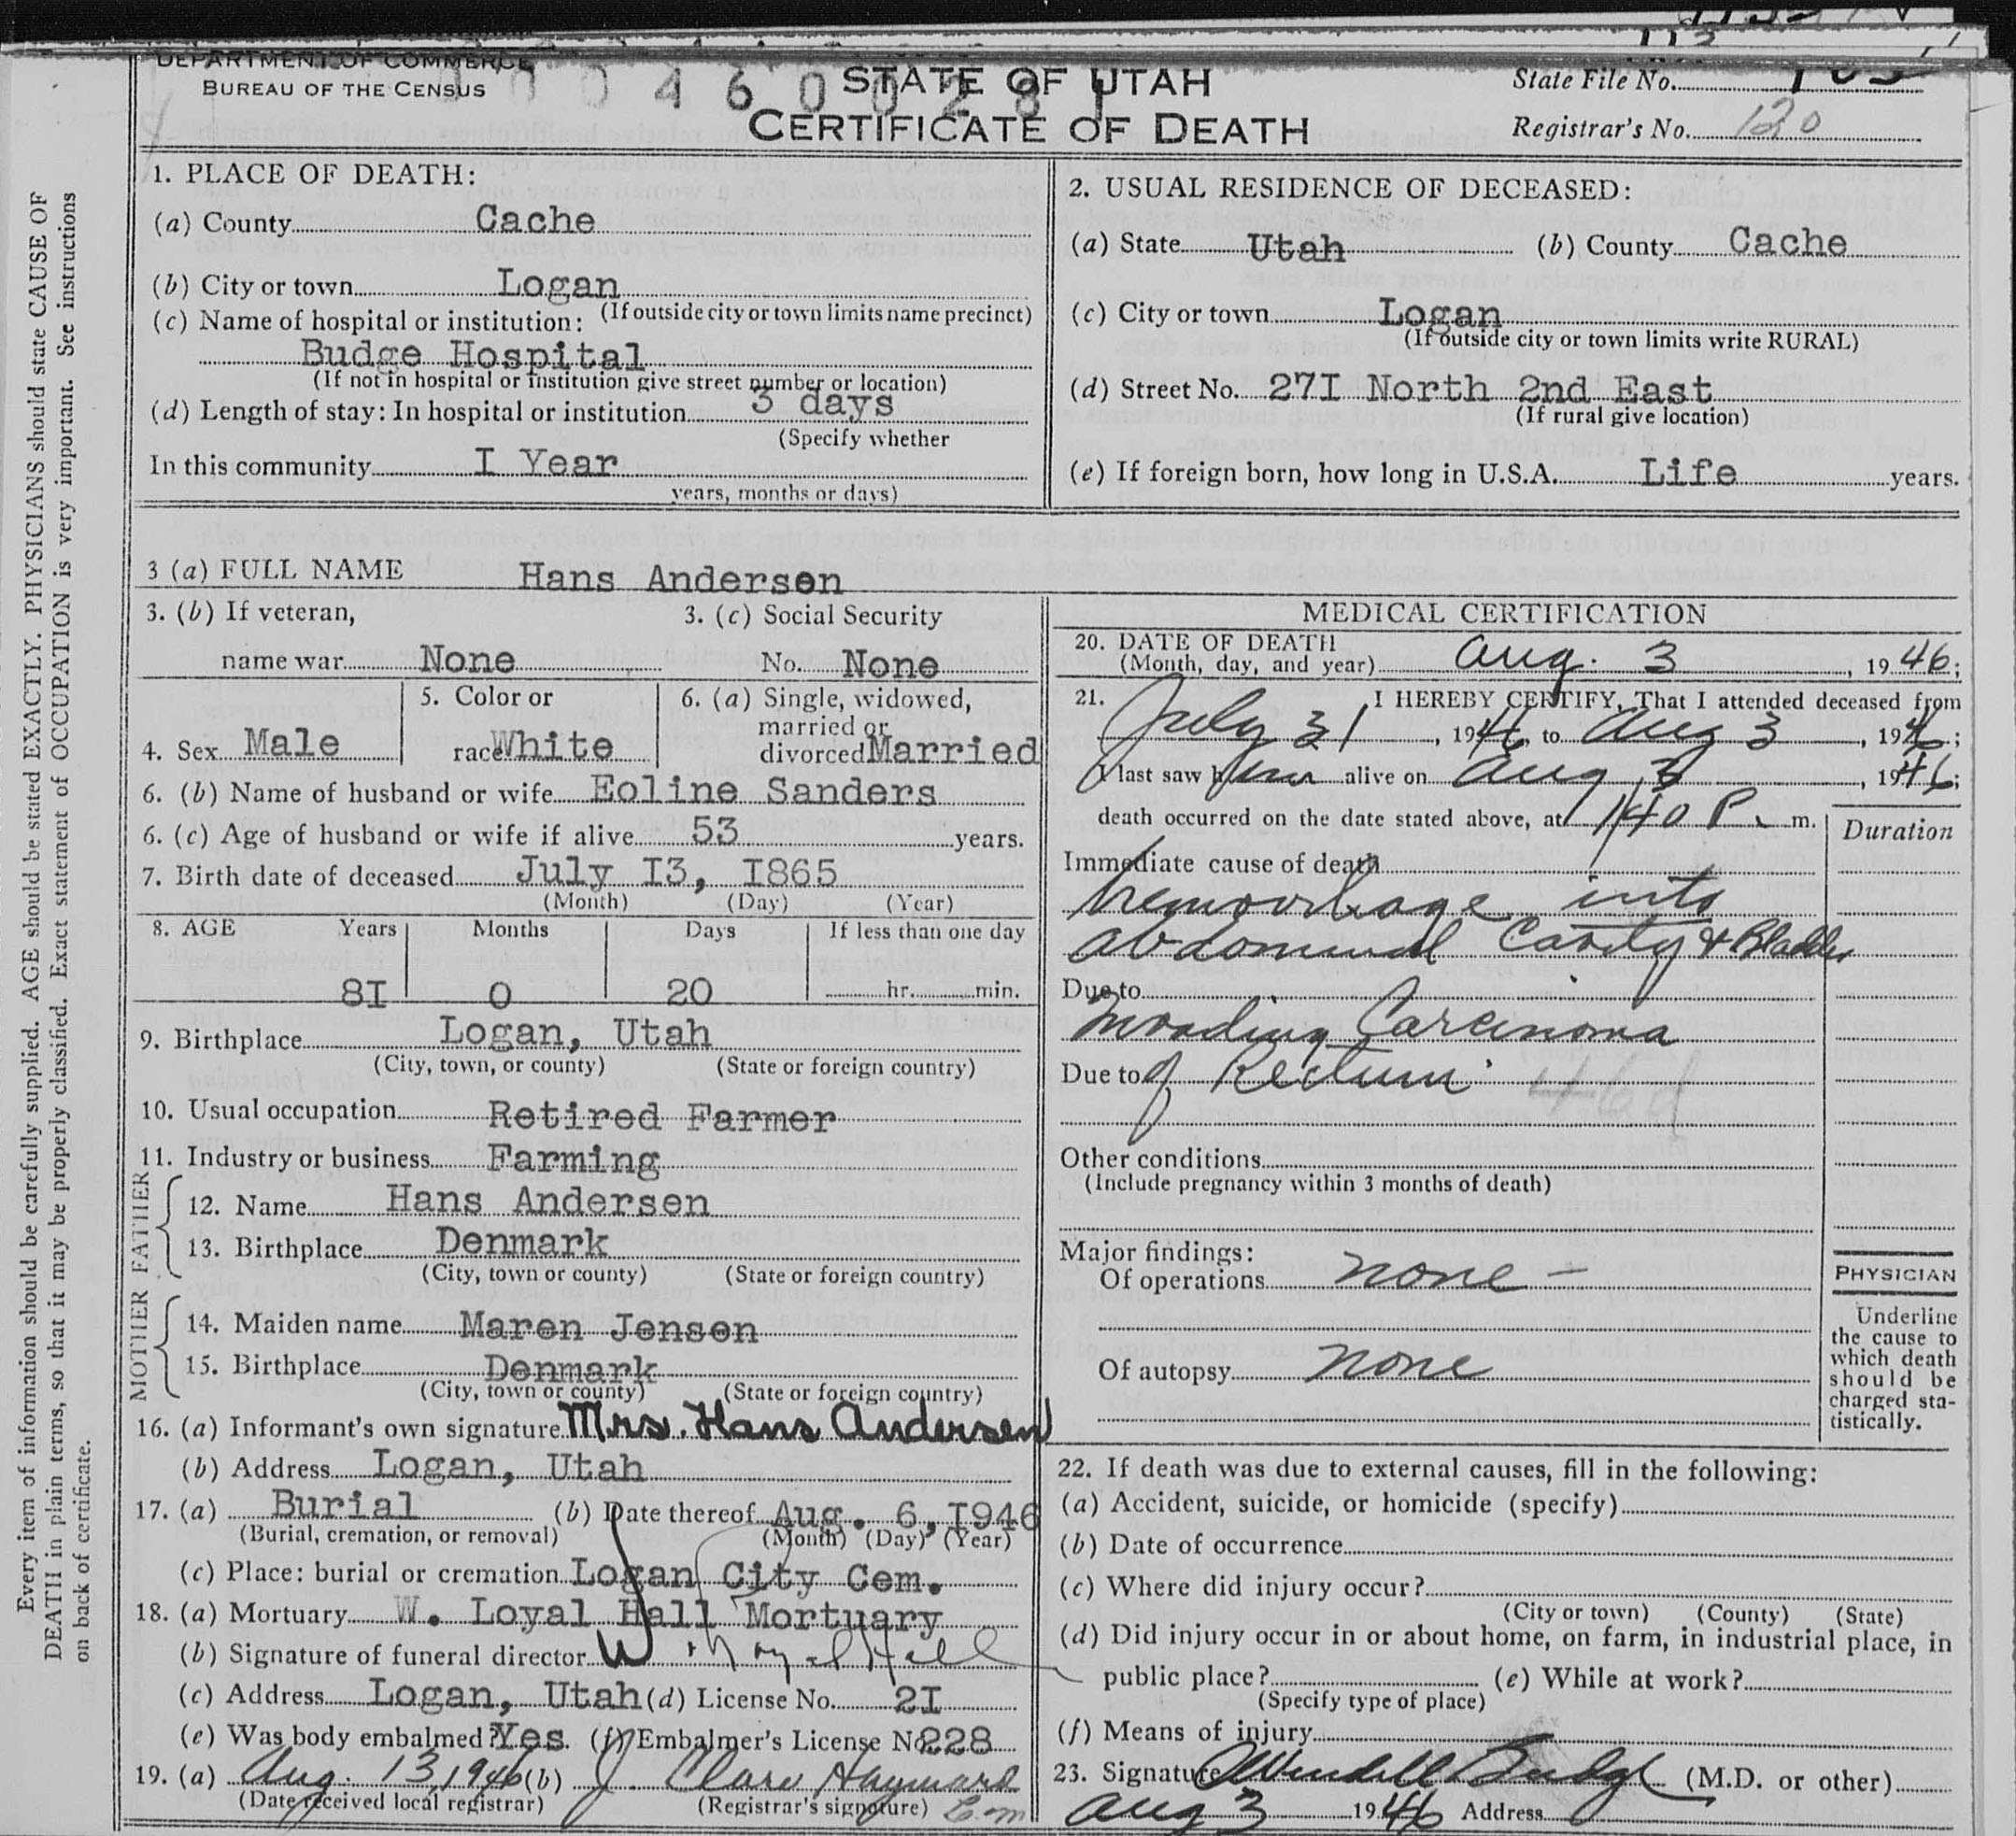 DEPARTMENT OF COMMERCE
BUREAU OF THE CENSUS
0 0 0 4 6 0 0 2 8 1
STATE OF UTAH
CERTIFICATE OF DEATH
State File No.
Registrar's No. 120
1. PLACE OF DEATH:
(a) County Cache
(b) City or town Logan
(If outside city or town limits name precinct)
(c) Name of hospital or institution:
Budge Hospital
(If not in hospital or institution give street number or location)
(d) Length of stay: In hospital or institution 3 days
(Specify whether
In this community I Year
years, months or days)
2. USUAL RESIDENCE OF DECEASED:
(a) State Utah (b) County Cache
(c) City or town Logan
(If outside city or town limits write RURAL)
(d) Street No. 27I North 2nd East
(If rural give location)
(e) If foreign born, how long in U.S.A. Life years.
3 (a) FULL NAME Hans Andersen
3. (b) If veteran, 3. (c) Social Security
name war None No. None
4. Sex Male
5. Color or
race White
6. (a) Single, widowed,
married or
divorced Married
6. (b) Name of husband or wife Eoline Sanders
6. (c) Age of husband or wife if alive 53 years.
7. Birth date of deceased July I3, I865
(Month) (Day) (Year)
8. AGE Years Months Days If less than one day
8I 0 20 hr. min.
9. Birthplace Logan, Utah
(City, town, or county) (State or foreign country)
10. Usual occupation Retired Farmer
11. Industry or business Farming
FATHER
12. Name Hans Andersen
13. Birthplace Denmark
(City, town or county) (State or foreign country)
MOTHER
14. Maiden name Maren Jensen
15. Birthplace Denmark
(City, town or county) (State or foreign country)
16. (a) Informant's own signature Mrs. Hans Andersen
(b) Address Logan, Utah
17. (a) Burial (b) Date thereof Aug. 6, I946
(Burial, cremation, or removal) (Month) (Day) (Year)
(c) Place: burial or cremation Logan City Cem.
18. (a) Mortuary W. Loyal Hall Mortuary
(b) Signature of funeral director W. Loyal Hall
(c) Address Logan, Utah (d) License No. 2I
(e) Was body embalmed? Yes. (f) Embalmer's License No. 228
19. (a) Aug. 13, 1946 (b) J. Clare Hayward
(Date received local registrar) (Registrar's signature)
MEDICAL CERTIFICATION
20. DATE OF DEATH
(Month, day, and year) Aug. 3, 1946;
21. I HEREBY CERTIFY, That I attended deceased from
July 31, 1946, to Aug 3, 1946;
I last saw him alive on Aug 3, 1946;
death occurred on the date stated above, at 1:40 P. m.
Duration
Immediate cause of death
hemorrhage into
abdominal Cavity & Bladder
Due to
Invading Carcinoma
Due to of Rectum
46d
Other conditions
(Include pregnancy within 3 months of death)
Major findings:
Of operations none -
Of autopsy none
PHYSICIAN
Underline
the cause to
which death
should be
charged sta-
tistically.
22. If death was due to external causes, fill in the following:
(a) Accident, suicide, or homicide (specify)
(b) Date of occurrence
(c) Where did injury occur?
(City or town) (County) (State)
(d) Did injury occur in or about home, on farm, in industrial place, in
public place? (e) While at work?
(Specify type of place)
(f) Means of injury
23. Signature Wendell Budge (M.D. or other)
Aug 3 1946 Address
Every item of information should be carefully supplied. AGE should be stated EXACTLY. PHYSICIANS should state CAUSE OF
DEATH in plain terms, so that it may be properly classified. Exact statement of OCCUPATION is very important. See instructions
on back of certificate.